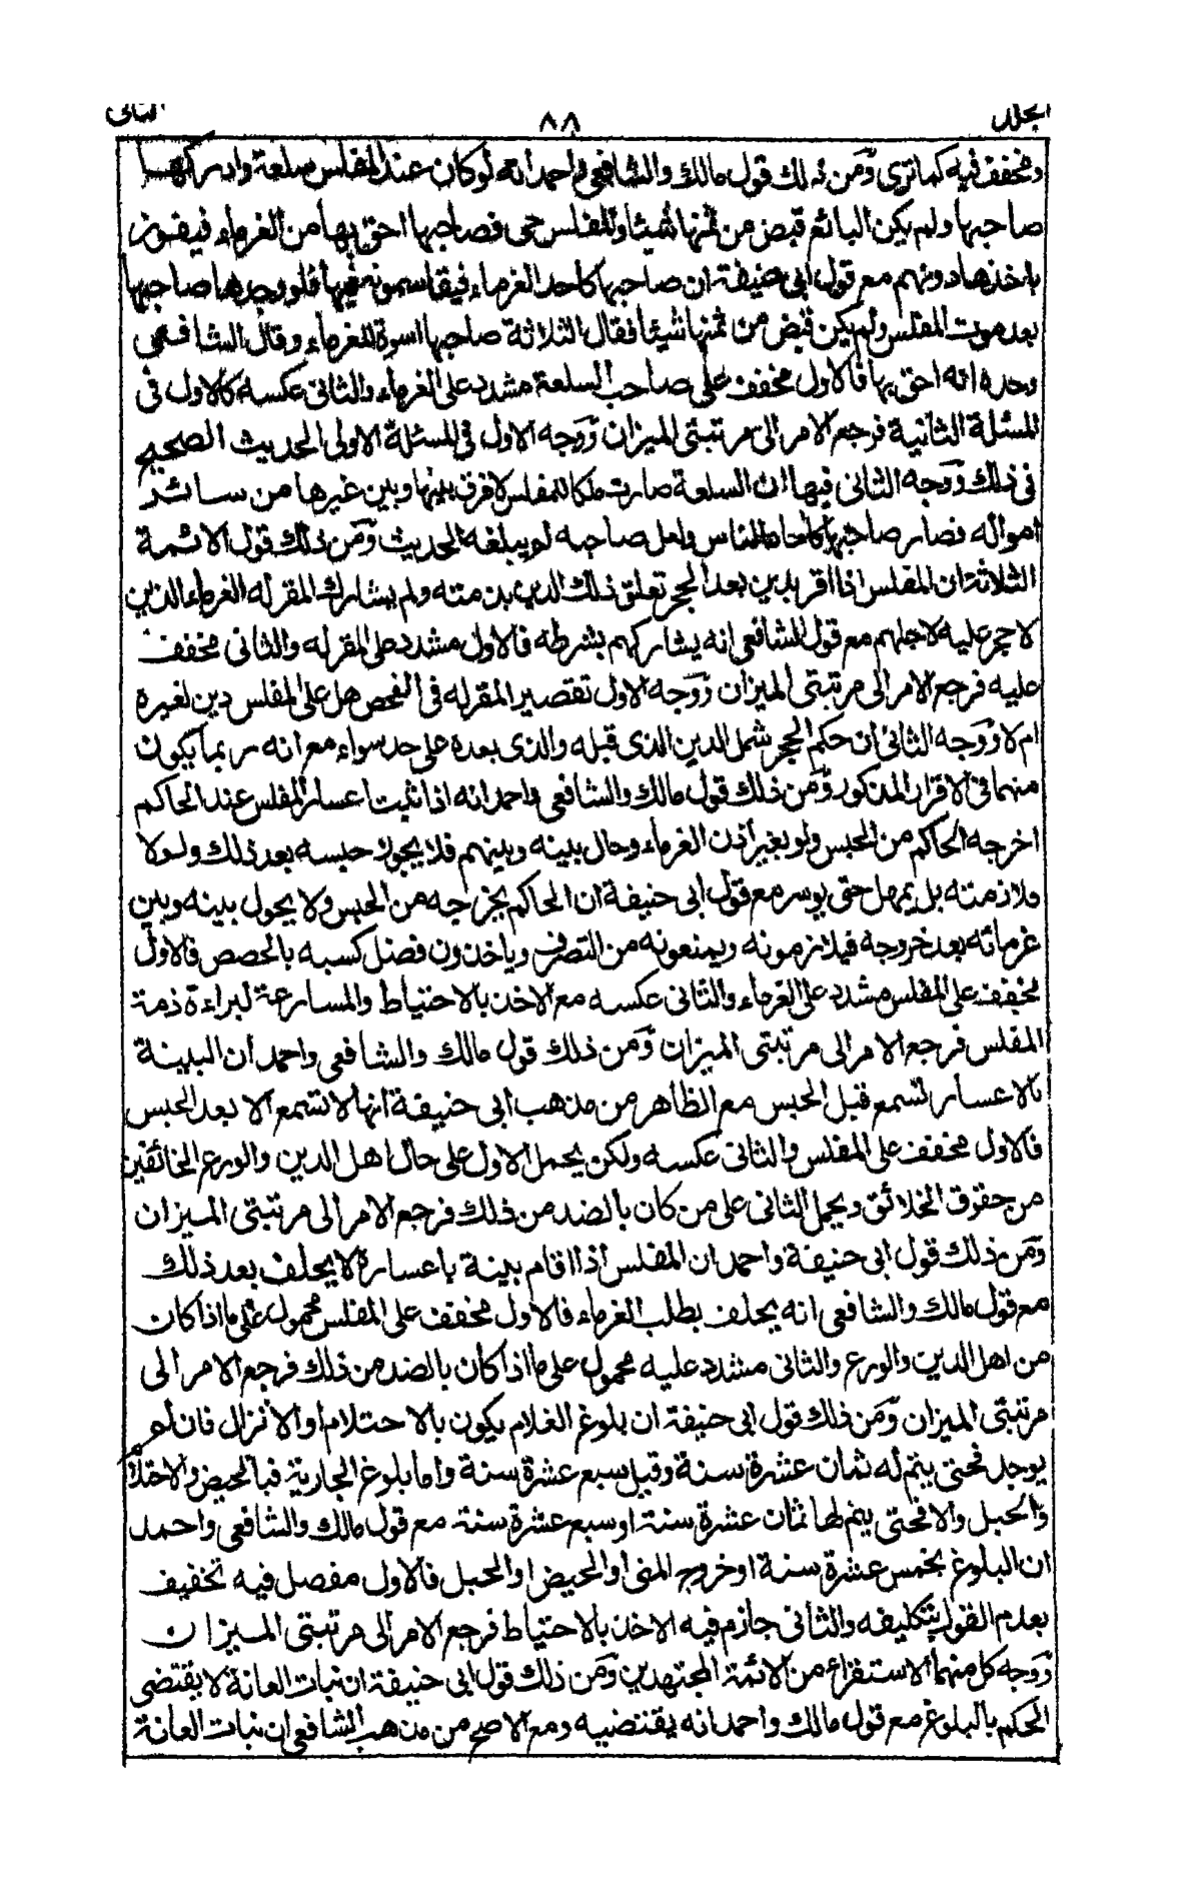 المجلد ٨٨ الثانى
ومخفف فيه كما ترى ومن ذلك قول مالك والشافعى واحمد انه لو كان عند المفلس سلعة وادركها
صاحبها ولم يكن البائع قبض من ثمنها شيئا والمفلس حى فصاحبها احق بها من الغرماء فيفوز
باخذها دونهم مع قول ابى حنيفة ان صاحبها كاحد الغرماء فيقاسمونه فيها فلو وجدها صاحبها
بعد موت المفلس ولم يكن قبض من ثمنها شيئا فقال الثلاثة صاحبها اسوة للغرماء وقال الشافعى
وحده انه احق بها فالاول مخفف على صاحب السلعة مشدد على الغرماء والثانى عكسه كالاول فى
المسئلة الثانية فرجع الامر الى مرتبتى الميزان ووجه الاول فى المسئلة الاولى الحديث الصحيح
فى ذلك ووجه الثانى فيها ان السلعة صارت ملكا للمفلس لا فرق بينها وبين غيرها من سائر
امواله فصار صاحبها كآحاد الناس ولعل صاحبه لم يبلغه الحديث ومن ذلك قول الائمة
الثلاثة ان المفلس اذا اقر بدين بعد الحجر تعلق ذلك الدين بذمته ولم يشارك المقر له الغرماء الذين
لا حجر عليه لاجلهم مع قول الشافعى انه يشاركهم بشرطه فالاول مشدد على المقر له والثانى مخفف
عليه فرجع الامر الى مرتبتى الميزان ووجه الاول تقصير المقر له فى الفحص هل على المفلس دين لغيره
ام لا ووجه الثانى ان حكم الحجر شمل الدين الذى قبله والذى بعده على حد سواء مع انه ربما يكون
متهما فى الاقرار المذكور ومن ذلك قول مالك والشافعى واحمد انه اذا ثبت اعسار المفلس عند الحاكم
اخرجه الحاكم من الحبس ولو بغير اذن الغرماء وحال بينه وبينهم فلا يجوز حبسه بعد ذلك ولا
ملازمته بل يمهل حتى يوسر مع قول ابى حنيفة ان الحاكم يخرجه من الحبس ولا يحول بينه وبين
غرمائه بعد خروجه فيلازمونه ويمنعونه من التصرف وياخذون فضل كسبه بالحصص فالاول
مخفف على المفلس مشدد على الغرماء والثانى عكسه مع الاخذ بالاحتياط والمسارعة لبراءة ذمة
المفلس فرجع الامر الى مرتبتى الميزان ومن ذلك قول مالك والشافعى واحمد ان البينة
بالاعسار تسمع قبل الحبس مع الظاهر من مذهب ابى حنيفة انها لا تسمع الا بعد الحبس
فالاول مخفف على المفلس والثانى عكسه ولكن يحمل الاول على حال اهل الدين والورع الخائفين
من حقوق الخلائق ويحمل الثانى على من كان بالضد من ذلك فرجع الامر الى مرتبتى الميزان
ومن ذلك قول ابى حنيفة واحمد ان المفلس اذا اقام بينة باعساره لا يحلف بعد ذلك
مع قول مالك والشافعى انه يحلف بطلب الغرماء فالاول مخفف على المفلس محمول على ما اذا كان
من اهل الدين والورع والثانى مشدد عليه محمول على ما اذا كان بالضد من ذلك فرجع الامر الى
مرتبتى الميزان ومن ذلك قول ابى حنيفة ان بلوغ الغلام يكون بالاحتلام او الانزال فان لم
يوجد فحتى يتم له ثمان عشرة سنة وقيل سبع عشرة سنة واما بلوغ الجارية فبالحيض والاحتلام
والحبل والا فحتى يتم لها ثمان عشرة سنة او سبع عشرة سنة مع قول مالك والشافعى واحمد
ان البلوغ بخمس عشرة سنة او خروج المنى او الحيض او الحبل فالاول مفصل فيه تخفيف
بعدم القول بتكليفه والثانى جازم فيه الاخذ بالاحتياط فرجع الامر الى مرتبتى الميزان
ووجه كل منهما الاستقراء من الائمة المجتهدين ومن ذلك قول ابى حنيفة ان نبات العانة لا يقتضى
الحكم بالبلوغ مع قول مالك واحمد انه يقتضيه ومع الاصح من مذهب الشافعى ان نبات العانة